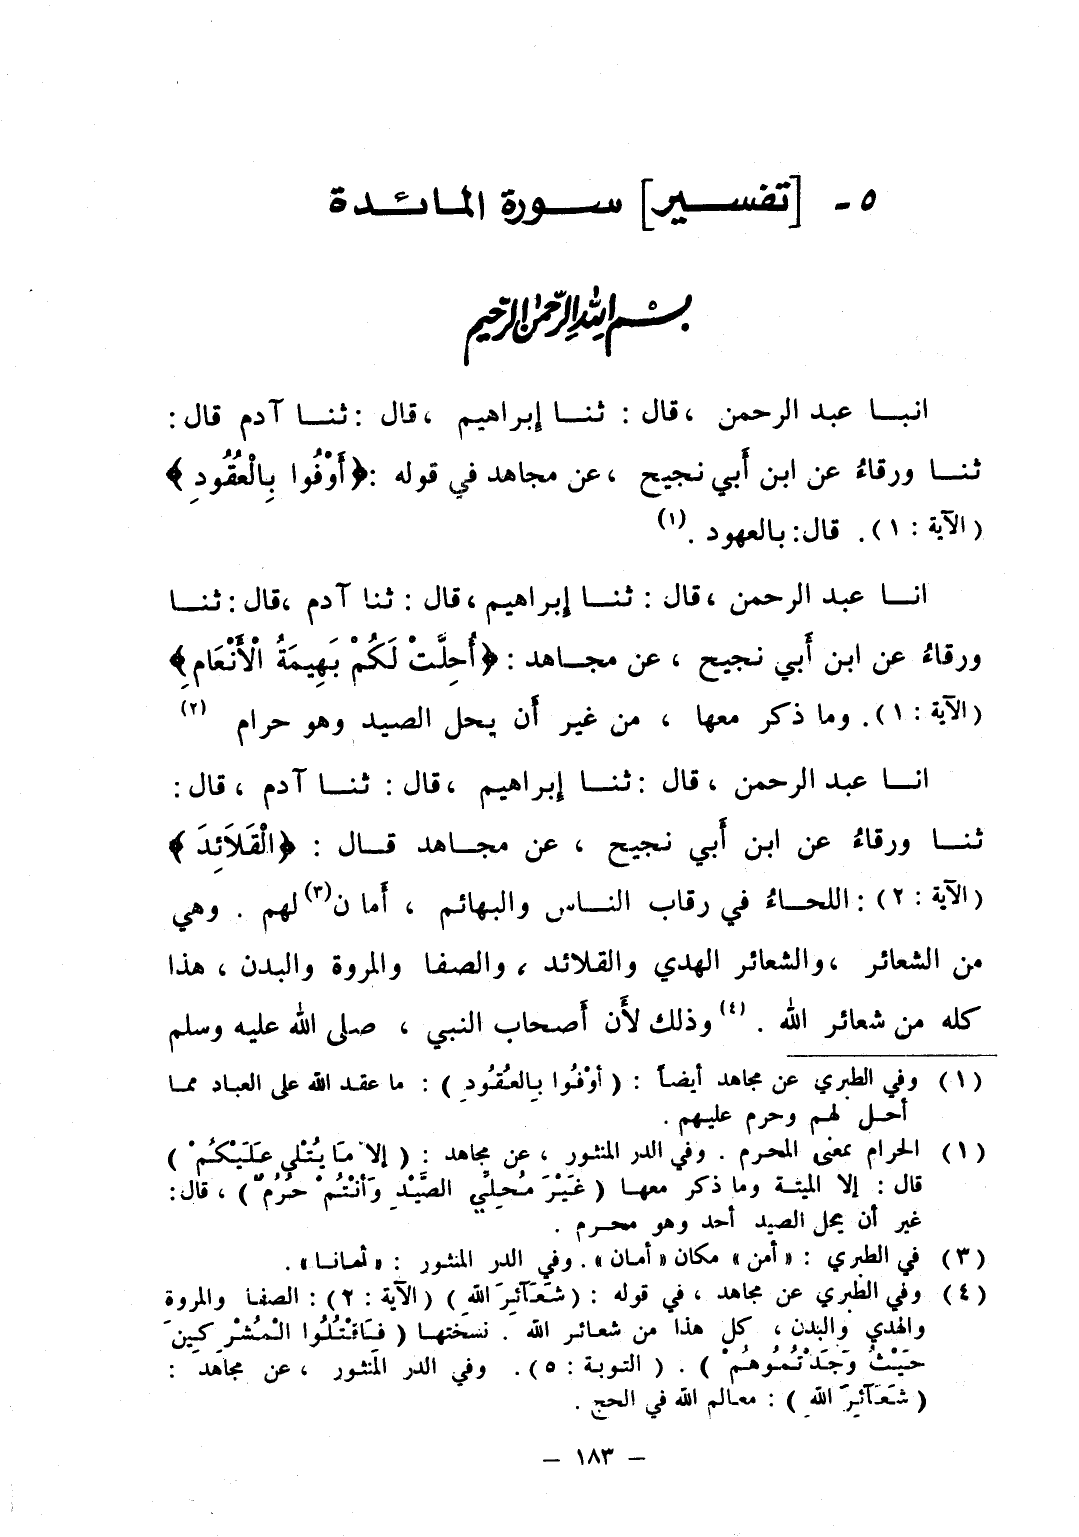 ٥ - [تفسير] سورة المائدة
بسم الله الرحمن الرحيم
انبا عبد الرحمن ، قال : ثنا إبراهيم ، قال : ثنا آدم قال :
ثنا ورقاءُ عن ابن أَبي نجيح ، عن مجاهد في قوله : ﴿أَوْفُوا بِالْعُقُودِ ﴾
(الآية : ١) . قال : بالعهود . (١)
انا عبد الرحمن ، قال : ثنا إبراهيم ، قال : ثنا آدم ، قال : ثنا
ورقاءُ عن ابن أَبي نجيح ، عن مجاهد : ﴿أُحِلَّتْ لَكُمْ بَهِيمَةُ الْأَنْعَامِ﴾
(الآية : ١) . وما ذكر معها ، من غير أَن يحل الصيد وهو حرام (٢)
انا عبد الرحمن ، قال : ثنا إبراهيم ، قال : ثنا آدم ، قال :
ثنا ورقاءُ عن ابن أَبي نجيح ، عن مجاهد قال : ﴿الْقَلَائِدَ ﴾
(الآية : ٢) : اللحاءُ في رقاب الناس والبهائم ، أَما ن(٣) لهم . وهي
من الشعائر ، والشعائر الهدي والقلائد ، والصفا والمروة والبدن ، هذا
كله من شعائر الله . (٤) وذلك لأَن أَصحاب النبي ، صلى الله عليه وسلم
(١) وفي الطبري عن مجاهد أيضاً : ( أوْفُوا بِالعُقُودِ ) : ما عقد الله على العباد مما
أحل لهم وحرم عليهم .
(١) الحرام بمعنى المحرم . وفي الدر المنثور ، عن مجاهد : ( إلا مَا يُتْلى عَلَيْكُمْ )
قال : إلا الميتة وما ذكر معها ( غَيْرَ مُحِلِّي الصَّيْدِ وَأنْتُمْ حُرُمٌ ) ، قال :
غير أن يحل الصيد أحد وهو محرم .
(٣) في الطبري : « أمن » مكان « أمان » . وفي الدر المنثور : « أمانا » .
(٤) وفي الطبري عن مجاهد ، في قوله : ( شَعَآئِرَ اللهِ ) (الآية : ٢) : الصفا والمروة
والهدي والبدن ، كل هذا من شعائر الله . نسختها ( فَاقْتُلُوا الْمُشْرِكِينَ
حَيْثُ وَجَدْتُمُوهُمْ ) . ( التوبة : ٥) . وفي الدر المنثور ، عن مجاهد :
( شَعَآئِرَ اللهِ ) : معالم الله في الحج .
– ١٨٣ –